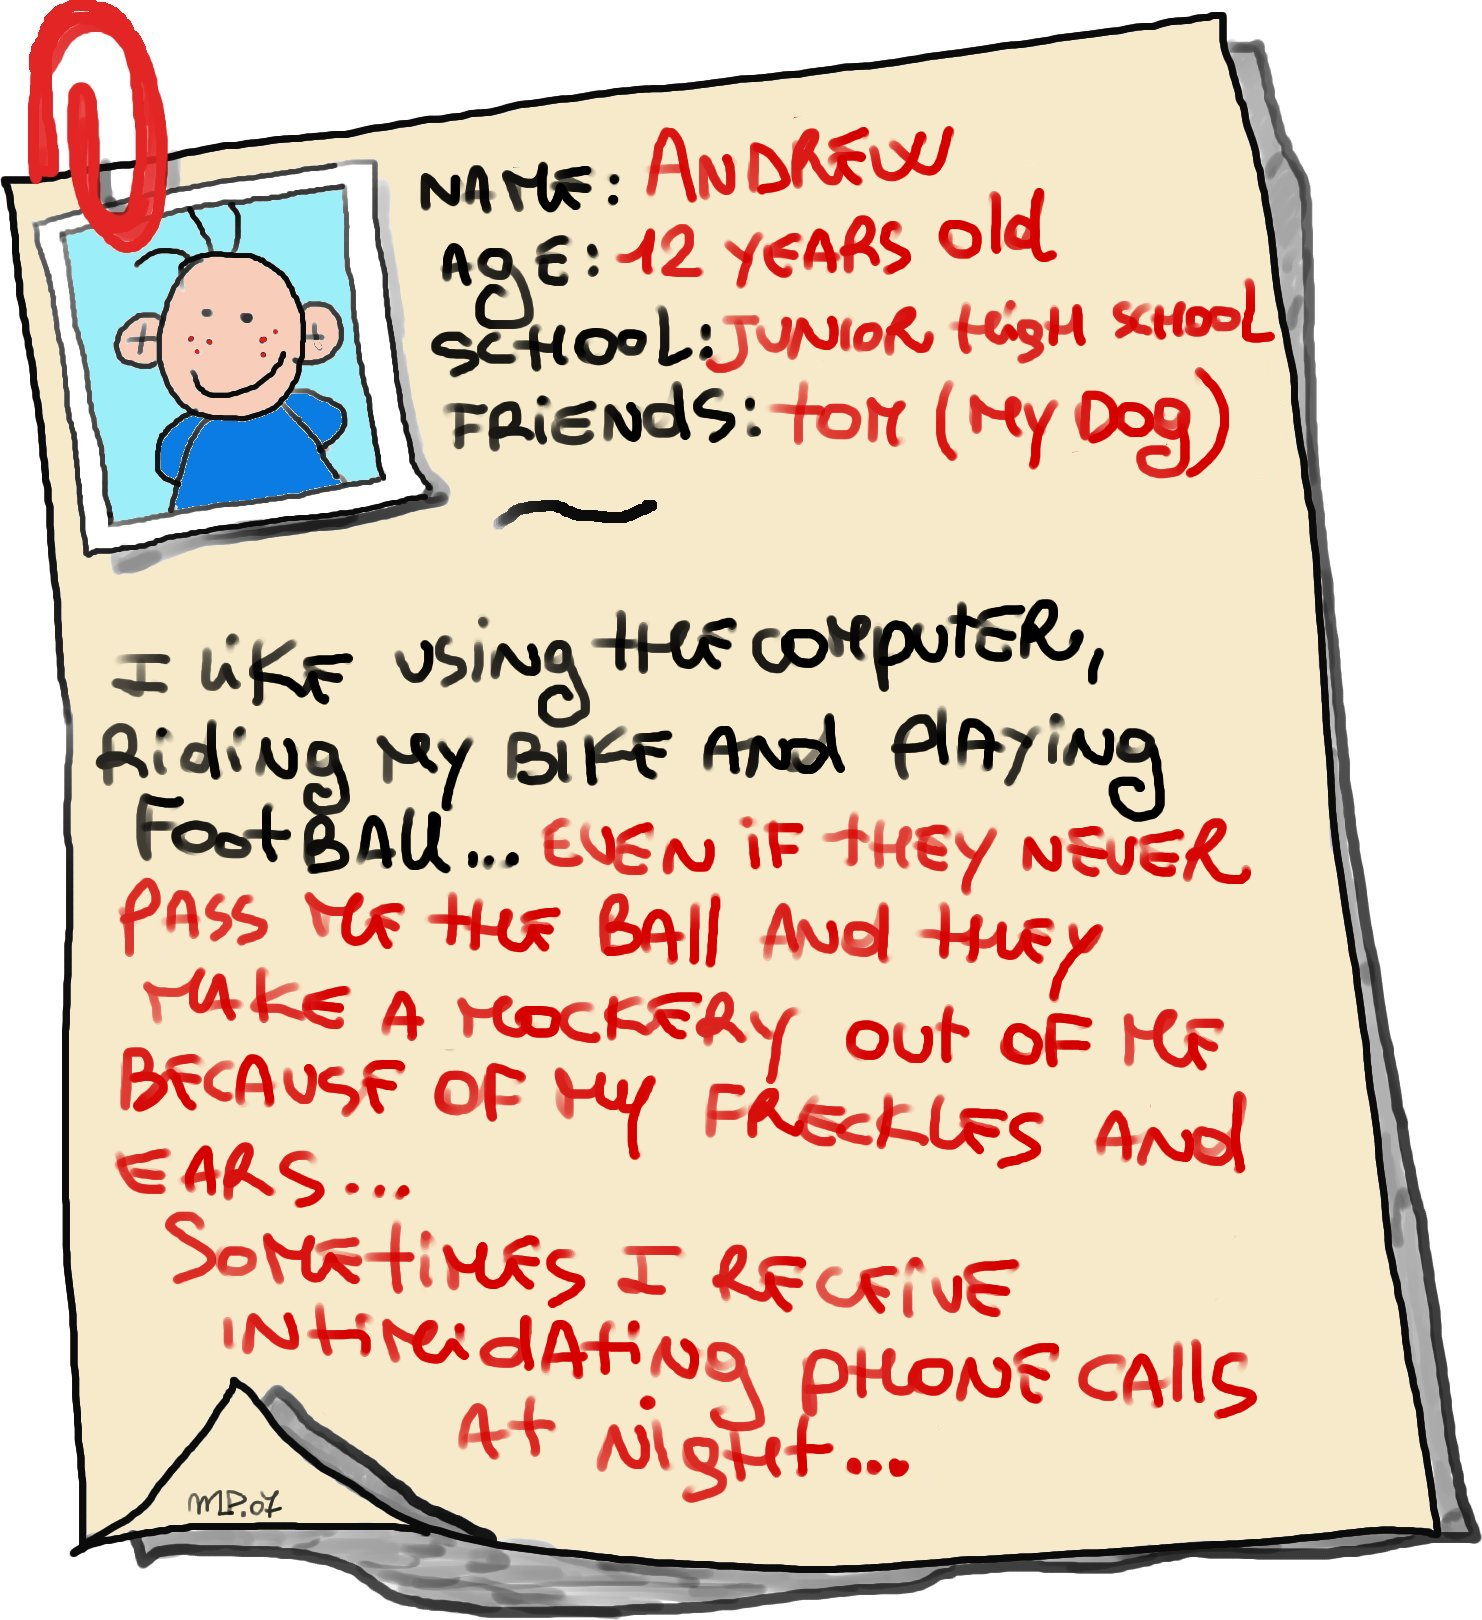 NAME: ANDREW
AgE: 12 YEARS old
SCHOOL: JUNIOR HigH SCHOOL
FRiENdS: tOM (MY DOg)
I liKE USiNg THE COMPUtER,
RidiNg MY BIKE ANd PlAYiNg
FootBAll... EVEN iF THEY NEVER
PASS ME THE BAll ANd THEY
MAKE A MOCKERY OUt OF ME
BECAUSE OF MY FRECKLES ANd
EARS...
SOMEtiMES I RECEiVE
iNtiMidAtiNg PHONE CAllS
At NigHt...
MP.07